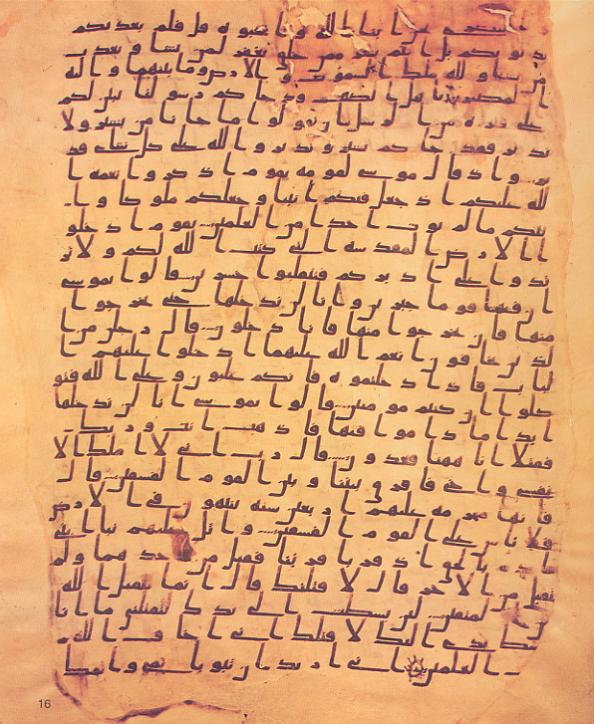 نحن ابنا الله واحبوه قل فلم يعذبكم
بذنوبكم بل انتم بشر ممن خلق يغفر لمن يشا ويعذب
من يشا ولله ملك السموت والارض وما بينهما واليه
المصير ياهل الكتب قد جاكم رسولنا يبين لكم
على فتره من الرسل ان تقولوا ما جانا من بشير ولا
نذير فقد جاكم بشير ونذير والله على كل شاى قد
ير واذ قال موسى لقومه يقوم اذكروا نعمه ا
لله عليكم اذ جعل فيكم انبيا وجعلكم ملوكا وا
تيكم ما لم يوت احدا من العلمين يقوم ادخلو
ا الارض المقدسه التى كتب الله لكم ولا تر
تدوا على ادبركم فتنقلبوا خسرين قالوا يموسى
ان فيها قوما جبرين وانا لن ندخلها حتى يخرجوا
منها فان يخرجوا منها فانا دخلون قال رجلن من ا
لذين يخافون انعم الله عليهما ادخلوا عليهم ا
لباب فاذا دخلتموه فانكم غلبون وعلى الله فتو
كلوا ان كنتم مومنين قالوا يموسى انا لن ندخلها
ابدا ما داموا فيها فاذهب انت وربك
فقتلا انا ههنا قعدون قال رب انى لا املك الا
نفسى واخى فافرق بيننا وبين القوم الفسقين قال
فانها محرمه عليهم اربعين سنه يتيهون فى الارض
فلا تاس على القوم الفسقين واتل عليهم نبا ابنى
ادم بالحق اذ قربا قربنا فتقبل من احدهما ولم
يتقبل من الاخر قال لاقتلنك قال انما يتقبل الله
من المتقين لين بسطت الى يدك لتقتلنى ما انا
بباسط يدى اليك لاقتلك انى اخاف الله
رب العلمين انى اريد ان تبوا باثمى واثمك
16